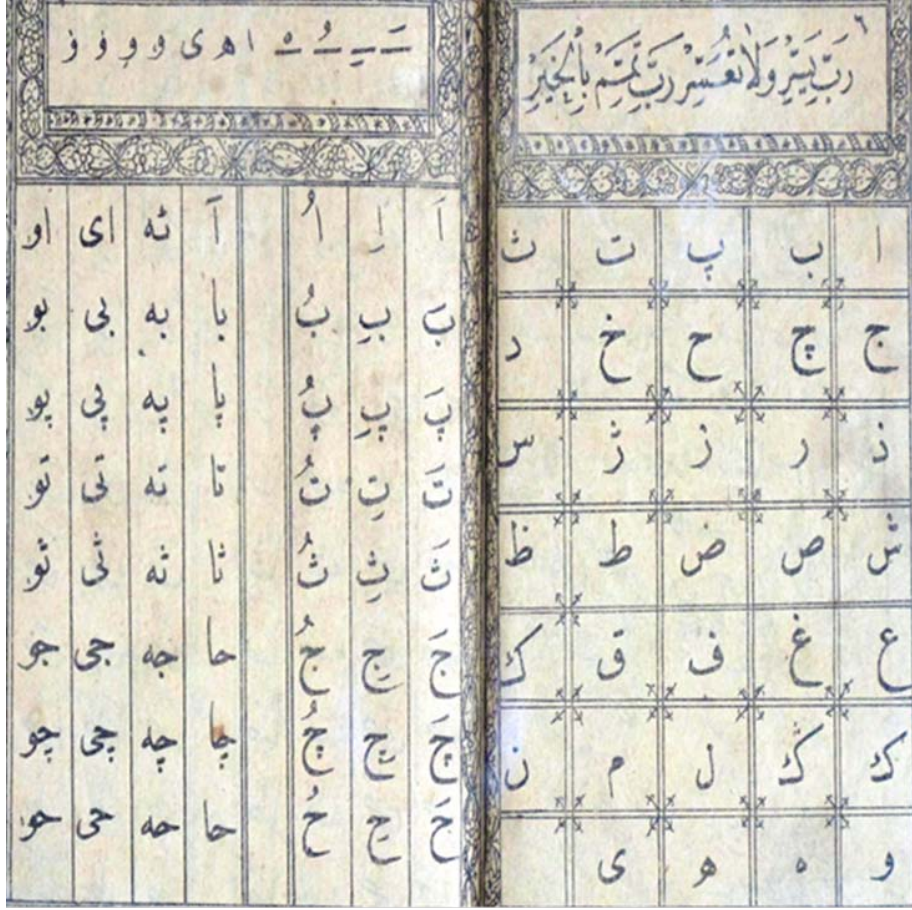 ٦
رَبِّ يَسِّرْ وَلَا تُعَسِّرْ رَبِّ تَمِّمْ بِالْخَيْرِ
ا ب پ ت ث
ج چ ح خ د
ذ ر ز ژ س
ش ص ض ط ظ
ع غ ف ق ك
ک ڭ ل م ن
و ه ھ ى
ـَ ـِ ـُ ـْ ا ھ ى
اَ اِ اُ آ ئه اى او
بَ بِ بُ با به بى بو
پَ پِ پُ پا په پى پو
تَ تِ تُ تا ته تى تو
ثَ ثِ ثُ ثا ثه ثى ثو
جَ جِ جُ حا جه جى جو
چَ چِ چُ چا چه چى چو
حَ حِ حُ حا حه حى حو